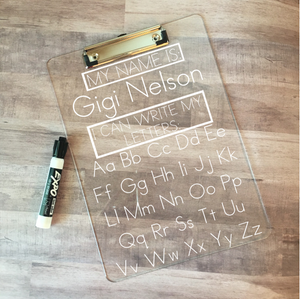 MY NAME IS
Gigi Nelson
I CAN WRITE MY
LETTERS
Aa Bb Cc Dd Ee
Ff Gg Hh Ii Jj Kk
Ll Mm Nn Oo Pp
Qq Rr Ss Tt Uu
Vv Ww Xx Yy Zz
EXPO